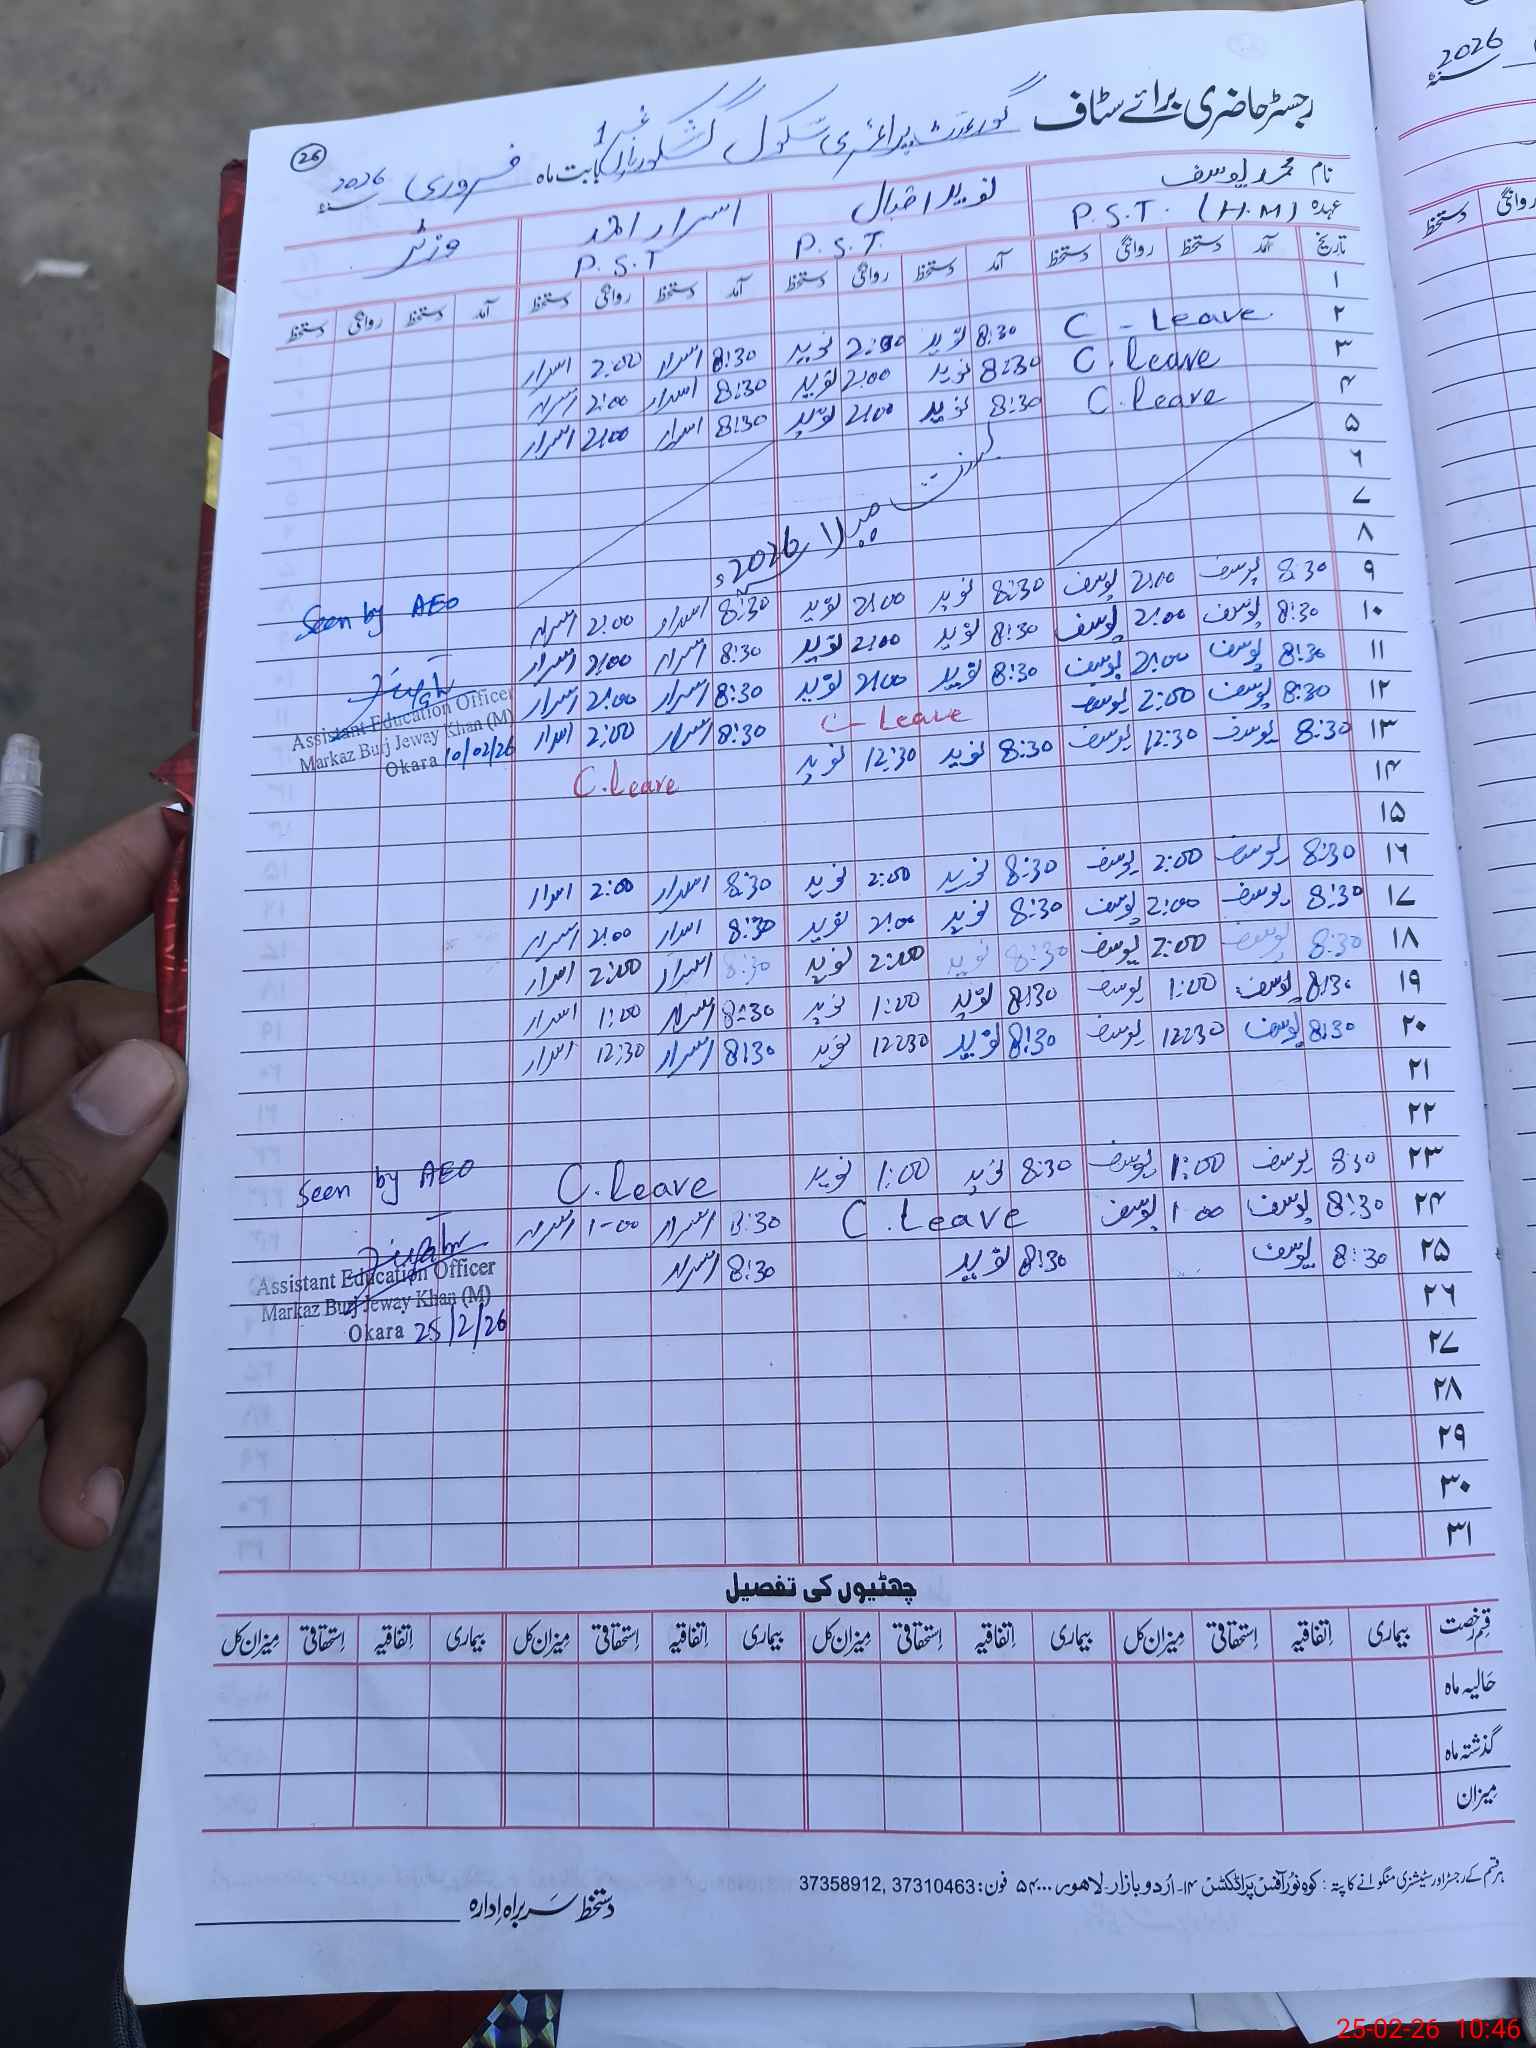 رجسٹر حاضری برائے سٹاف گورنمنٹ پرائمری سکول نمبر 1 بابت ماہ فروری سنہ 2026
26
نام محمد یوسف نوید اقبال اسرار احمد وزٹر
عہدہ P.S.T. (H.M) P.S.T. P.S.T
تاریخ آمد دستخط روانگی دستخط آمد دستخط روانگی دستخط آمد دستخط روانگی دستخط آمد دستخط روانگی دستخط
۱
۲ C-Leave 8:30 نوید 2:00 نوید 8:30 اسرار 2:00 اسرار
۳ C.Leave 8:30 نوید 2:00 نوید 8:30 اسرار 2:00 اسرار
۴ C.Leave 8:30 نوید 2:00 نوید 8:30 اسرار 2:00 اسرار
۵
۶ بسنت
۷ میلا
۸ 2026ء
۹ 8:30 یوسف 2:00 یوسف 8:30 نوید 2:00 نوید 8:30 اسرار 2:00 اسرار
۱۰ 8:30 یوسف 2:00 یوسف 8:30 نوید 2:00 نوید 8:30 اسرار 2:00 اسرار
۱۱ 8:30 یوسف 2:00 یوسف 8:30 نوید 2:00 نوید 8:30 اسرار 2:00 اسرار
۱۲ 8:30 یوسف 2:00 یوسف C-Leave 8:30 اسرار 2:00 اسرار
۱۳ 8:30 یوسف 12:30 یوسف 8:30 نوید 12:30 نوید C.Leave
Seen by AEO
Assistant Education Officer
Markaz Burj Jeway Khan (M)
Okara 10/02/26
۱۴
۱۵
۱۶ 8:30 یوسف 2:00 یوسف 8:30 نوید 2:00 نوید 8:30 اسرار 2:00 اسرار
۱۷ 8:30 یوسف 2:00 یوسف 8:30 نوید 2:00 نوید 8:30 اسرار 2:00 اسرار
۱۸ 8:30 یوسف 2:00 یوسف 8:30 نوید 2:00 نوید 8:30 اسرار 2:00 اسرار
۱۹ 8:30 یوسف 1:00 یوسف 8:30 نوید 1:00 نوید 8:30 اسرار 1:00 اسرار
۲۰ 8:30 یوسف 12:30 یوسف 8:30 نوید 12:30 نوید 8:30 اسرار 12:30 اسرار
۲۱
۲۲
۲۳ 8:30 یوسف 1:00 یوسف 8:30 نوید 1:00 نوید C.Leave
۲۴ 8:30 یوسف 1-00 یوسف C.Leave 8:30 اسرار 1-00 اسرار
۲۵ 8:30 یوسف 8:30 نوید 8:30 اسرار
Seen by AEO
Assistant Education Officer
Markaz Burj Jeway Khan (M)
Okara 25/2/26
۲۶
۲۷
۲۸
۲۹
۳۰
۳۱
چھٹیوں کی تفصیل
قسم رخصت بیماری اتفاقیہ استحقاقی میزان کل بیماری اتفاقیہ استحقاقی میزان کل بیماری اتفاقیہ استحقاقی میزان کل بیماری اتفاقیہ استحقاقی میزان کل
حالیہ ماہ
گذشتہ ماہ
میزان
ہر قسم کے رجسٹر اور سٹیشنری منگوانے کا پتہ: کوہ نور آفس پراڈکٹس ۱۴- اُردو بازار-لاهور ۵۴۰۰۰ فون: 37310463, 37358912
دستخط سربراہ ادارہ
2026 سنہ
روانگی دستخط
25-02-26 10:46